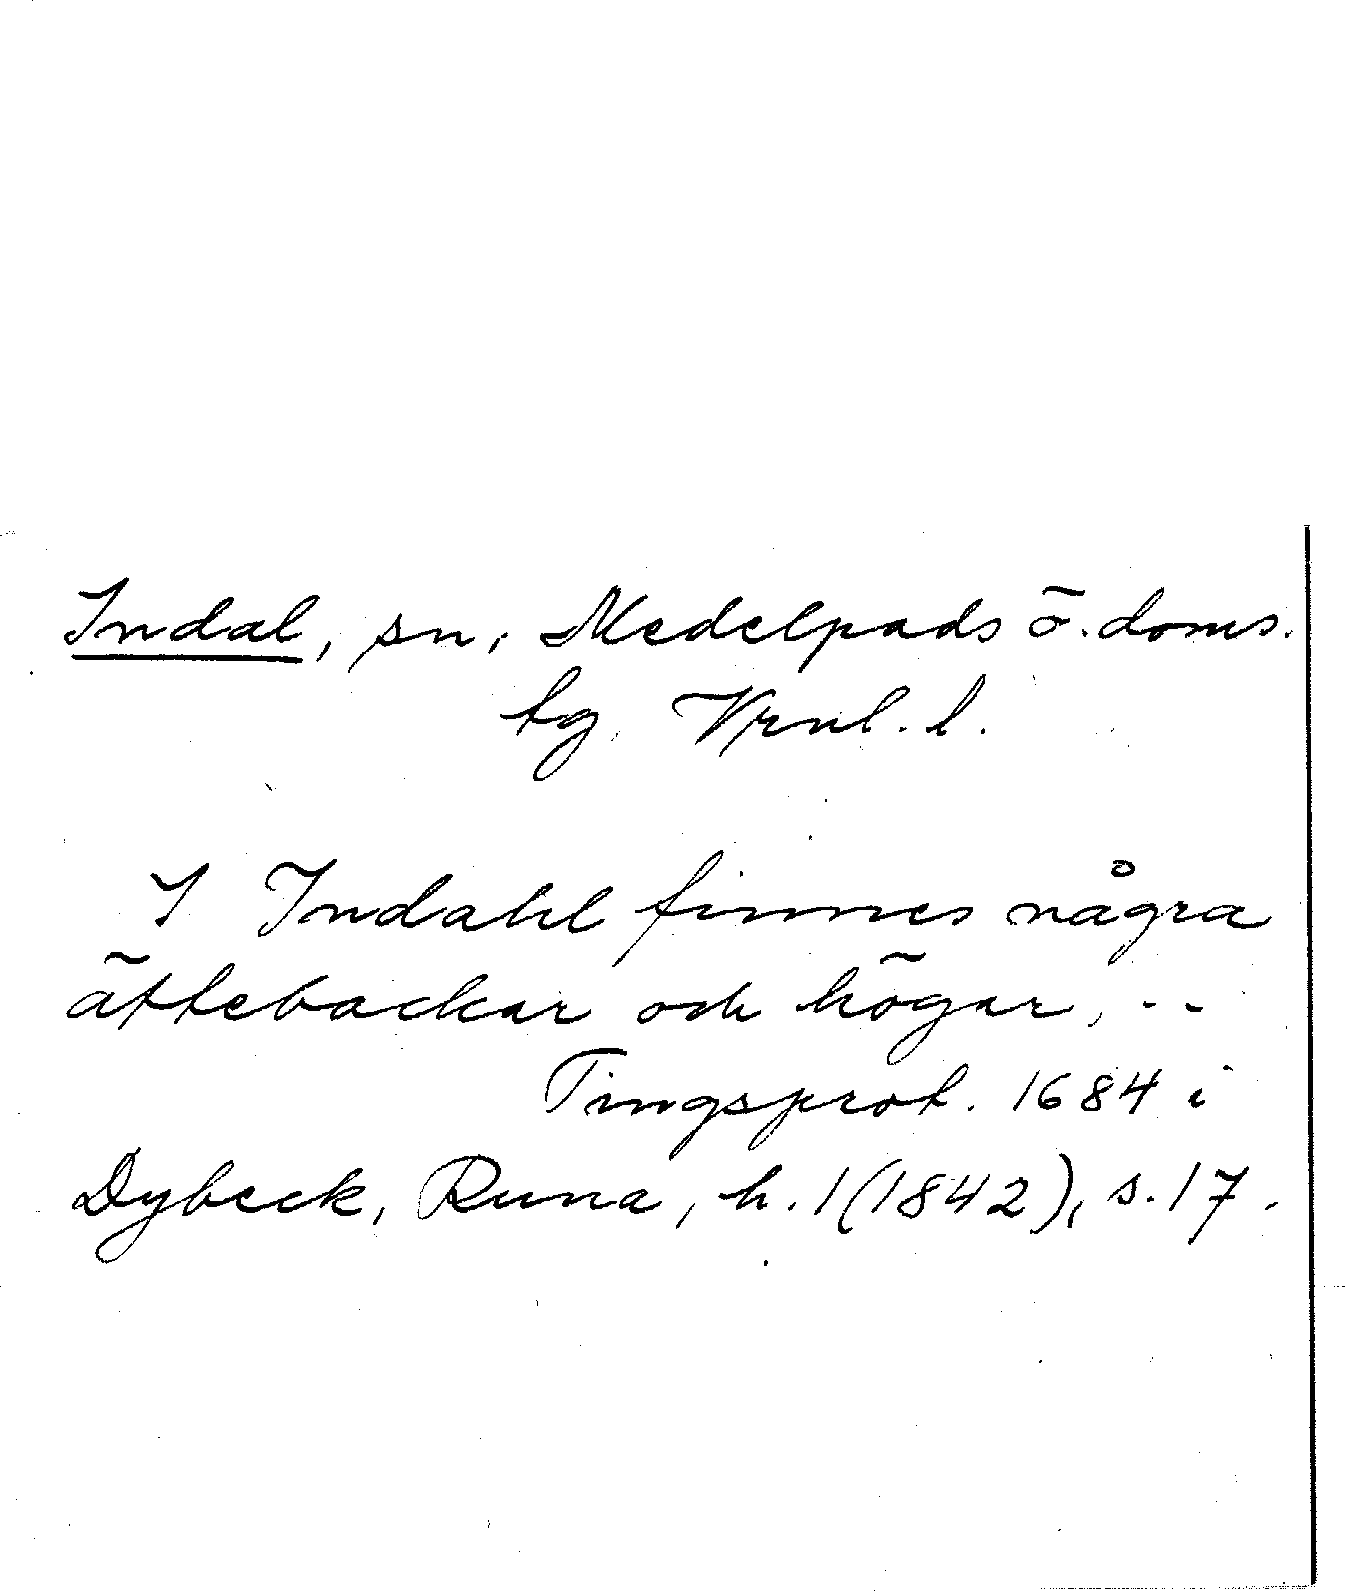 Indal, sn, Medelpads ö. doms.
tg, Vrnl. l.
I Indahl finnes några
ättebackar och högar, --
Tingsprot. 1684 i
Dybeck, Runa, h. 1 (1842), s. 17.